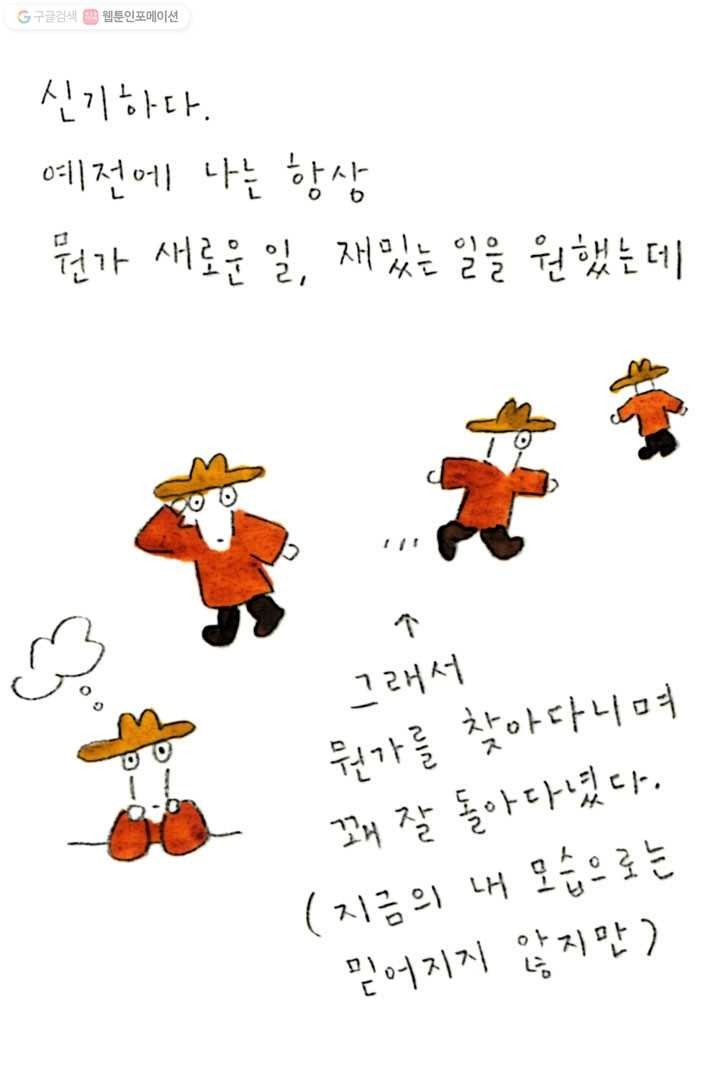 구글검색 웹툰인포메이션
신기하다.
예전에 나는 항상
뭔가 새로운 일, 재밌는 일을 원했는데
그래서
뭔가를 찾아다니며
꽤 잘 돌아다녔다.
(지금의 내 모습으로는
믿어지지 않지만)